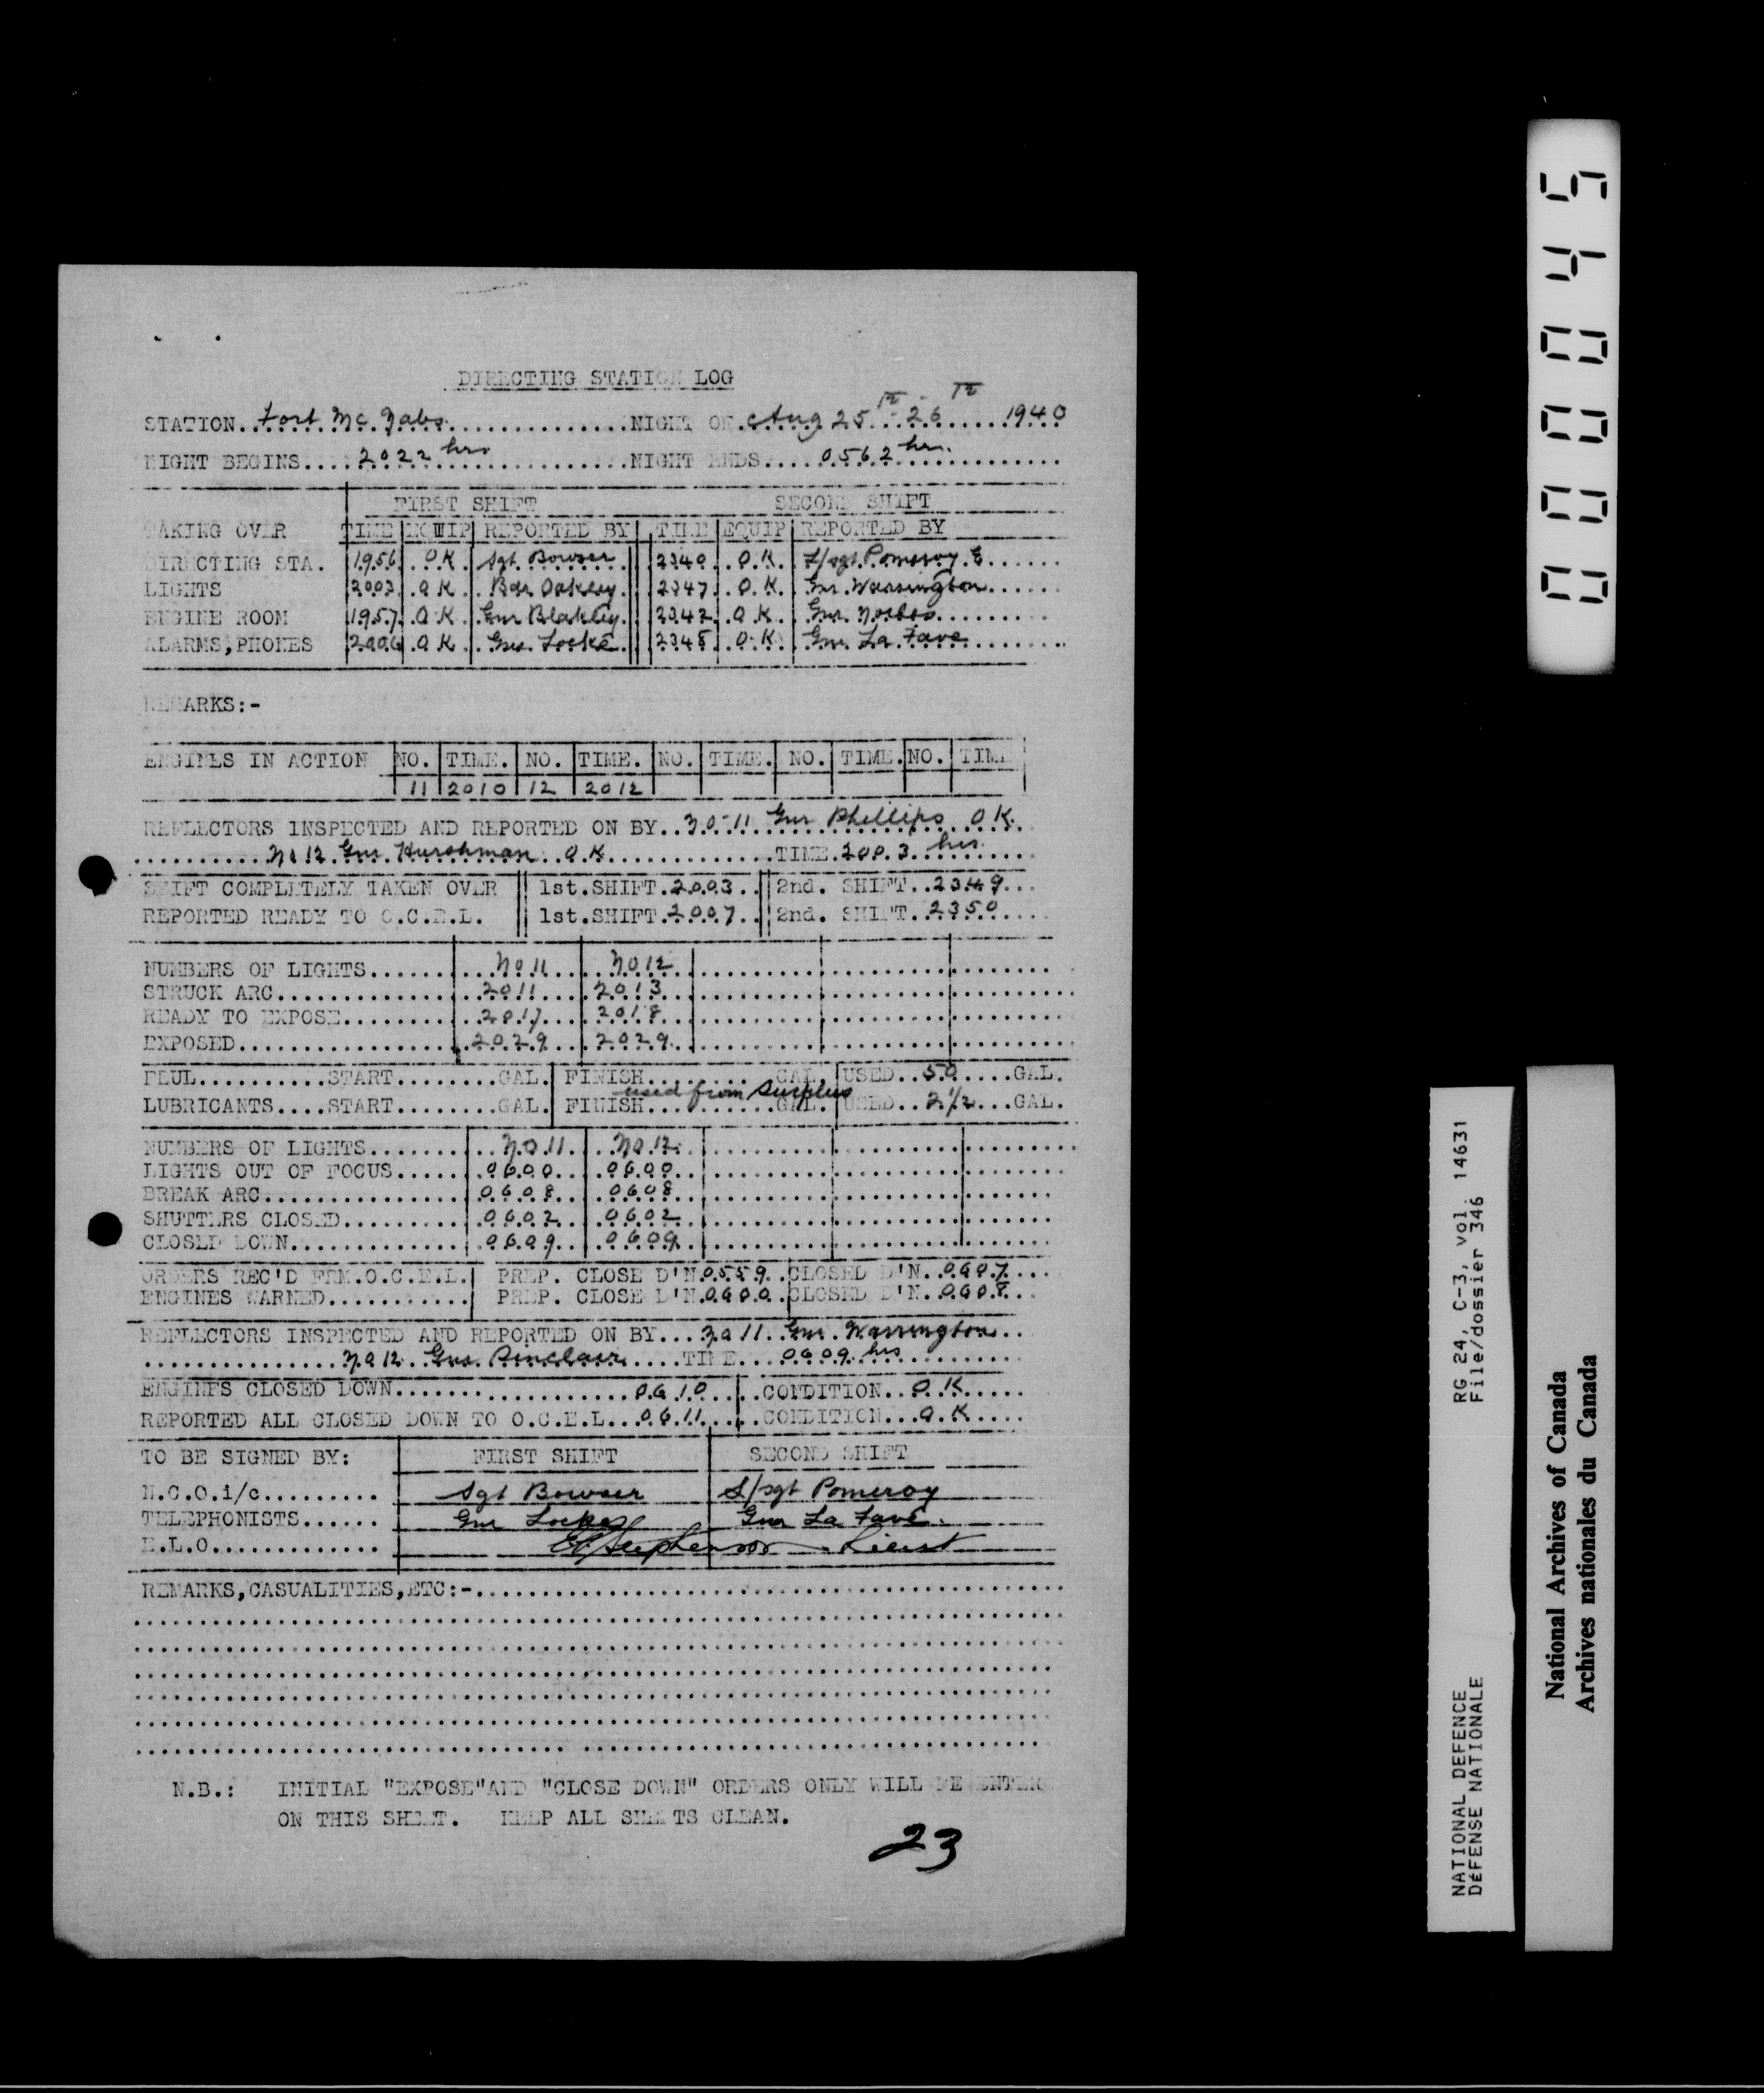 DIRECTING STATION LOG
STATION..Fort Mc Nabs.......NIGHT OF Aug 25th - 26th 1940
NIGHT BEGINS....2022 hrs.......NIGHT ENDS....0562 hrs.
FIRST SHIFT SECOND SHIFT
TAKING OVER TIME EQUIP REPORTED BY TIME EQUIP REPORTED BY
DIRECTING STA. 1956 O K Sgt Bowser 2340 O.K. L/sgt Pomeroy E.
LIGHTS 2003 O K Bdr Oakley 2347 O.K. Gnr. Warrington
ENGINE ROOM 1957 O K Gnr Blakley 2342 O K Gnr.
ALARMS,PHONES 2006 O K Gnr. Locke 2348 O.K. Gnr. La Fave
REMARKS:-
ENGINES IN ACTION NO. TIME. NO. TIME. NO. TIME. NO. TIME. NO. TIME
11 2010 12 2012
REFLECTORS INSPECTED AND REPORTED ON BY..No 11 Gnr Phillips O K.
No 12 Gnr. Hurshman O.K..........TIME.2003 hrs
SHIFT COMPLETELY TAKEN OVER 1st.SHIFT.2003.. 2nd. SHIFT..2349...
REPORTED READY TO O.C.E.L. 1st.SHIFT.2007.. 2nd. SHIFT..2350....
NUMBERS OF LIGHTS....... No 11 No 12
STRUCK ARC.............. 2011 2013
READY TO EXPOSE......... 2017 2018
EXPOSED................. 2029 2029
FEUL..........START........GAL. FINISH..........GAL. USED..50.....GAL.
used from Surplus
LUBRICANTS....START........GAL. FINISH..........GAL. USED..2 1/2...GAL.
NUMBERS OF LIGHTS....... No 11 No 12
LIGHTS OUT OF FOCUS..... 0600 0600
BREAK ARC............... 0608 0608
SHUTTERS CLOSED......... 0602 0602
CLOSED DOWN............. 0609 0609
ORDERS REC'D FRM.O.C.E.L. PREP. CLOSE D'N.0559..CLOSED D'N..0607....
ENGINES WARNED........... PREP. CLOSE D'N.0600..CLOSED D'N.0608...
REFLECTORS INSPECTED AND REPORTED ON BY...No 11 Gnr. Warrington...
No 12 Gnr. Sinclair.....TIME....0609 hrs
ENGINES CLOSED DOWN..................0610....CONDITION..O.K.....
REPORTED ALL CLOSED DOWN TO O.C.E.L...0611....CONDITION...O.K....
TO BE SIGNED BY: FIRST SHIFT SECOND SHIFT
N.C.O.i/c......... Sgt Bowser L/sgt Pomeroy
TELEPHONISTS...... Gnr Locke Gnr La Fave.
E.L.O............. Stephenson Lieut
REMARKS,CASUALITIES,ETC:-
N.B.: INITIAL "EXPOSE"AND "CLOSE DOWN" ORDERS ONLY WILL BE ENTER
ON THIS SHEET. KEEP ALL SHEETS CLEAN.
23
0000045
RG 24, C-3, vol. 14631
File/dossier 346
NATIONAL DEFENCE
DÉFENSE NATIONALE
National Archives of Canada
Archives nationales du Canada